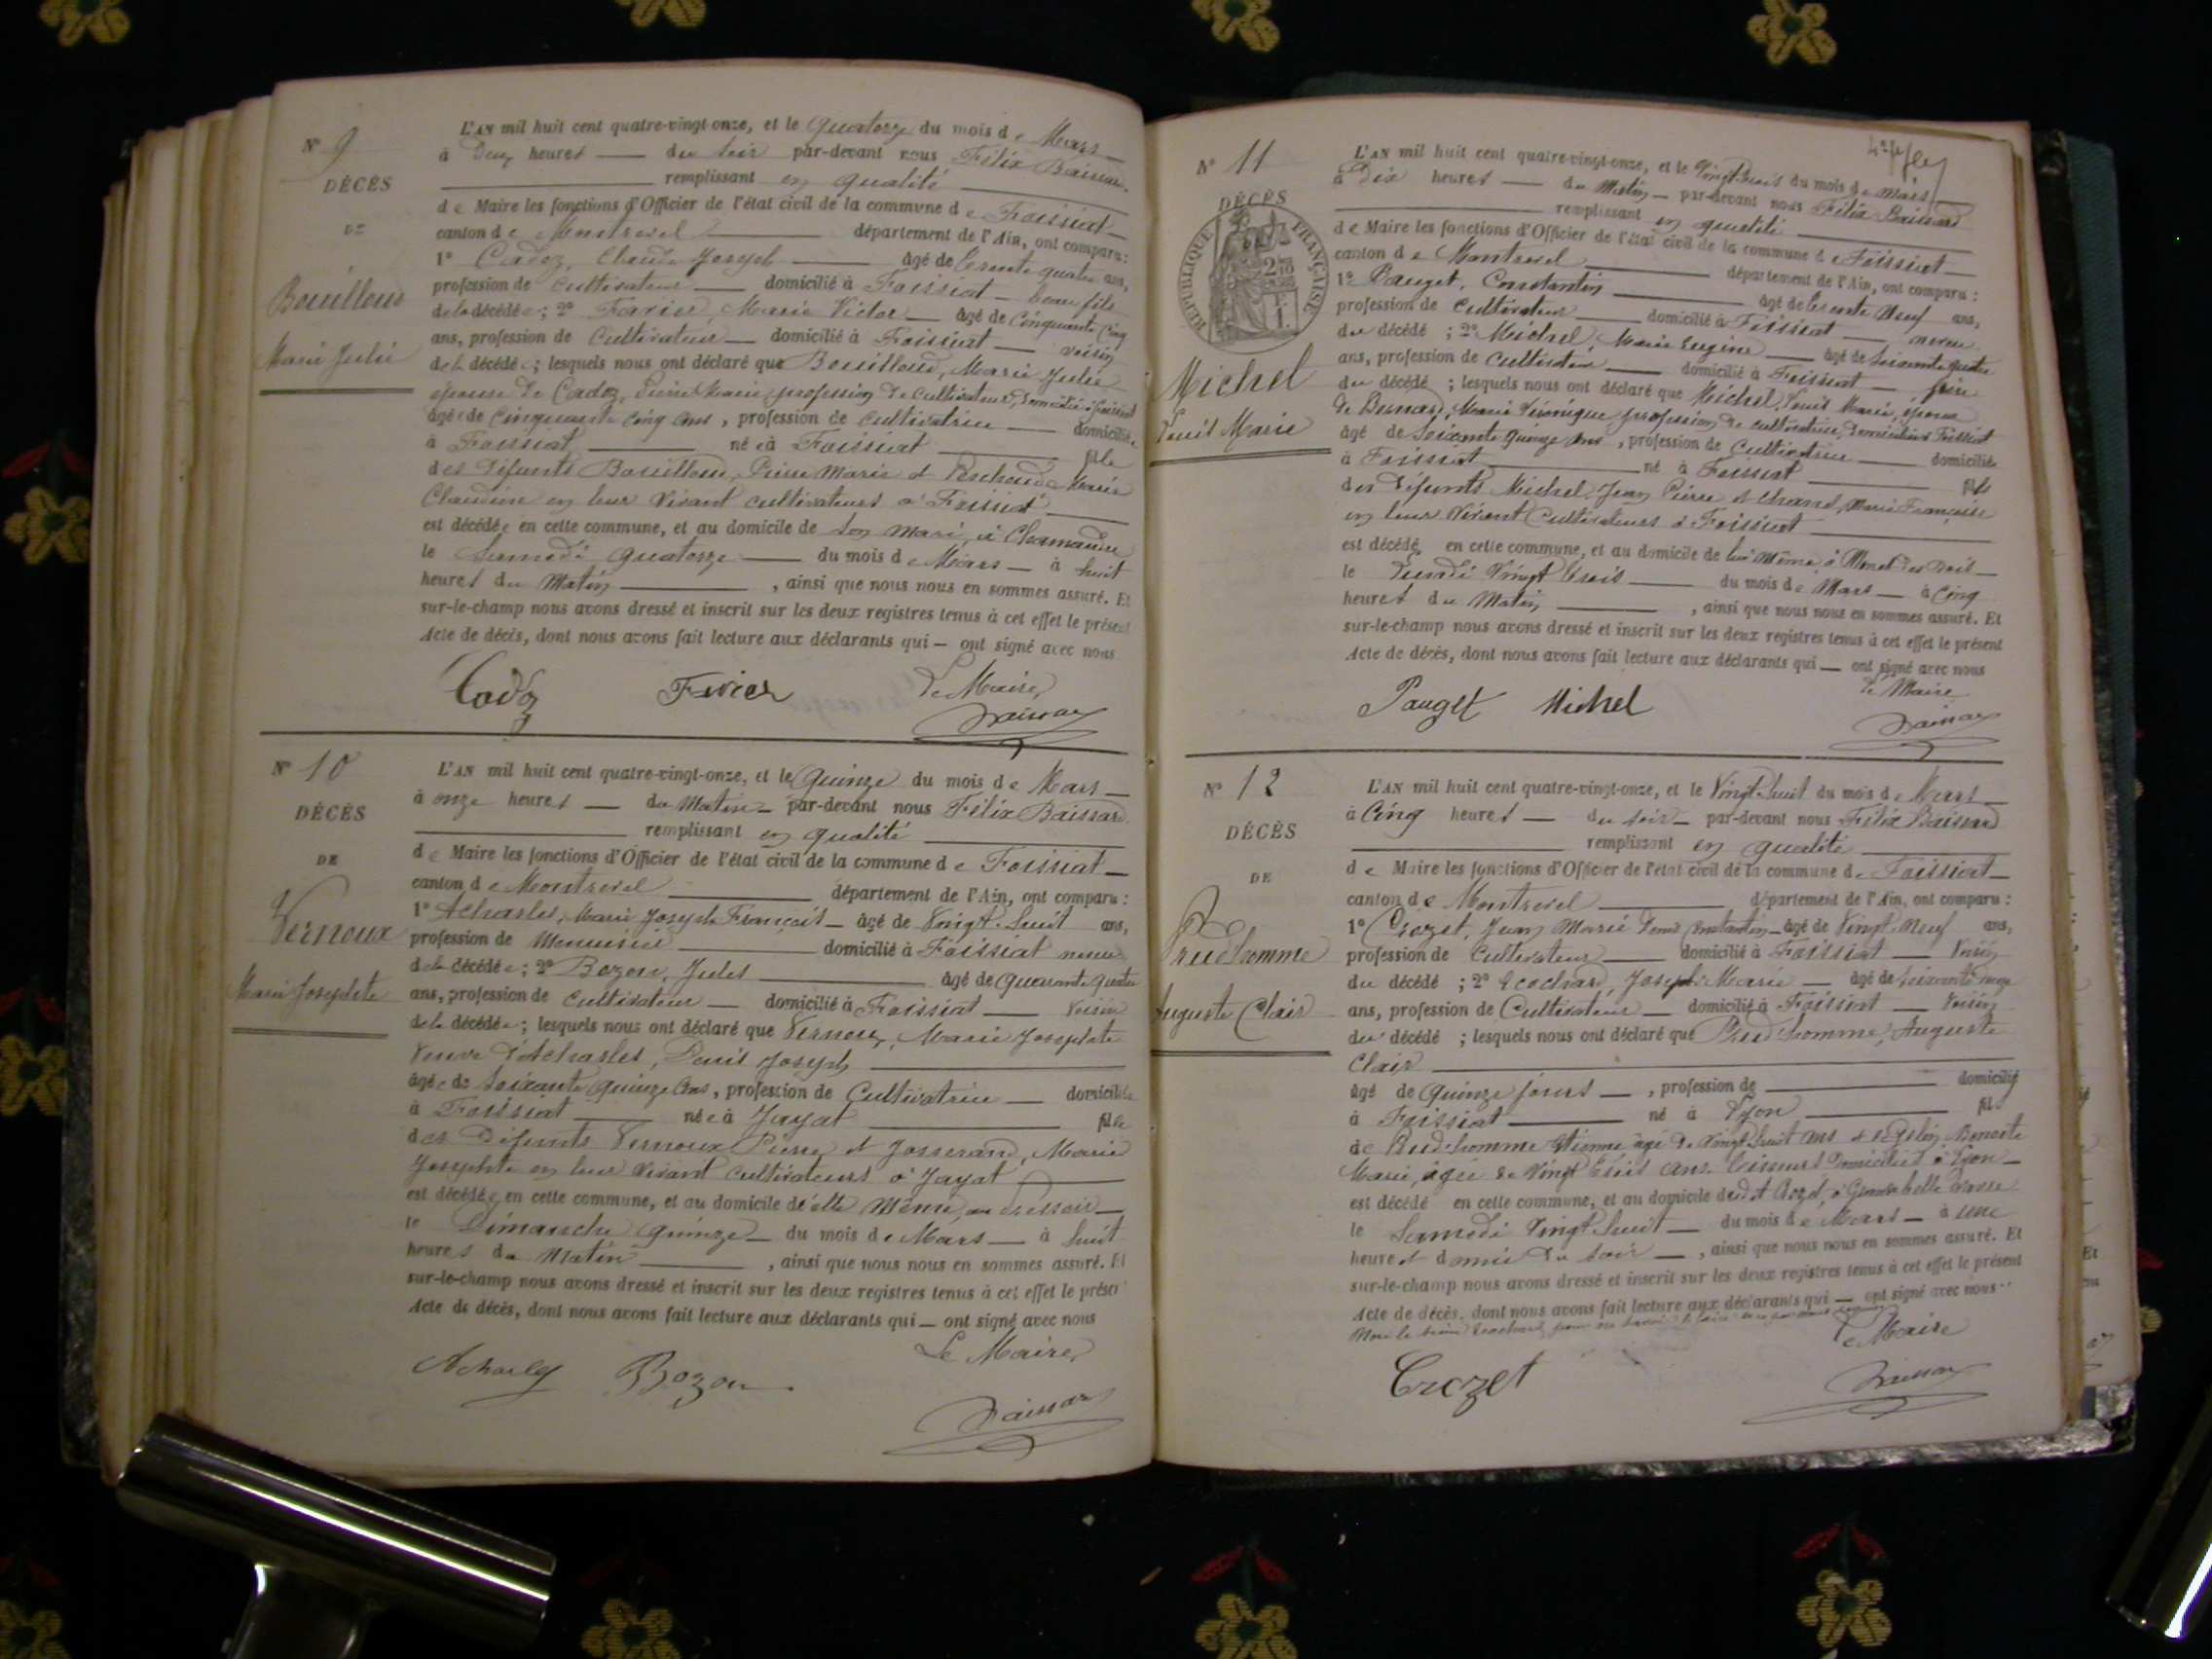 N° 9
DÉCÈS
DE
Bouilloud
Marie Julie
L'AN mil huit cent quatre-vingt-onze, et le Quatorze du mois de Mars
à Deux heures du soir par-devant nous Félix Baissard
remplissant en qualité
de Maire les fonctions d'Officier de l'état civil de la commune de Foissiat
canton de Montrevel département de l'Ain, ont comparu :
1° Cadoz, Claude Joseph âgé de trente quatre ans,
profession de Cultivateur domicilié à Foissiat beau fils
de la décédée ; 2° Marie Victor âgé de Cinquante Cinq
ans, profession de Cultivateur domicilié à Foissiat voisin
de la décédée ; lesquels nous ont déclaré que Bouilloud, Marie Julie
épouse de Cadoz, Pierre Marie profession de Cultivateur, domicilié à Foissiat
âgée de Cinquante Cinq ans, profession de Cultivatrice domiciliée
à Foissiat née à Foissiat fille
des défunts Bouilloud, Pierre Marie et Marie
Claudine en leur vivant cultivateurs à Foissiat
est décédée en cette commune, et au domicile de son mari, à
le Samedi quatorze du mois de Mars à huit
heures du Matin, ainsi que nous nous en sommes assuré. Et
sur-le-champ nous avons dressé et inscrit sur les deux registres tenus à cet effet le présent
Acte de décès, dont nous avons fait lecture aux déclarants qui — ont signé avec nous
Cadoz
Le Maire
Baissard
N° 10
DÉCÈS
DE
Vernoux
Marie Josephte
L'AN mil huit cent quatre-vingt-onze, et le Quinze du mois de Mars
à onze heures du Matin par-devant nous Félix Baissard
remplissant en qualité
de Maire les fonctions d'Officier de l'état civil de la commune de Foissiat
canton de Montrevel département de l'Ain, ont comparu :
1° Acharles, Marie Joseph François âgé de Vingt-huit ans,
profession de Menuisier domicilié à Foissiat neveu
de la décédée ; 2° Bozon, Jules âgé de quarante quatre
ans, profession de Cultivateur domicilié à Foissiat Voisin
de la décédée ; lesquels nous ont déclaré que Vernoux, Marie Josephte
Veuve d'Acharles, Denis Joseph
âgée de Soixante quinze ans, profession de Cultivatrice domiciliée
à Foissiat née à Jayat fille
des Défunts Vernoux Pierre et Josserand, Marie
Josephte en leur vivant Cultivateurs à Jayat
est décédée en cette commune, et au domicile d'elle même, au Pressoir
le Dimanche quinze du mois de Mars à huit
heures du Matin, ainsi que nous nous en sommes assuré. Et
sur-le-champ nous avons dressé et inscrit sur les deux registres tenus à cet effet le présent
Acte de décès, dont nous avons fait lecture aux déclarants qui — ont signé avec nous
Acharles Bozon
Le Maire
Baissard
N° 11
DÉCÈS
RÉPUBLIQUE FRANÇAISE
Michel
Denis Marie
L'AN mil huit cent quatre-vingt-onze, et le Vingt trois du mois de Mars
à Dix heures du Matin par-devant nous Félix Baissard
remplissant en qualité
de Maire les fonctions d'Officier de l'état civil de la commune de Foissiat
canton de Montrevel département de l'Ain, ont comparu :
1° Pauget, Constantin âgé de trente Neuf ans,
profession de Cultivateur domicilié à Foissiat neveu
du décédé ; 2° Michel, Marie Eugène âgé de Soixante quatre
ans, profession de Cultivateur domicilié à Foissiat frère
du décédé ; lesquels nous ont déclaré que Michel, Denis Marie, époux
de Marie Véronique profession de cultivatrice, domiciliée à Foissiat
âgé de Soixante quinze ans, profession de Cultivatrice domicilié
à Foissiat né à Foissiat fils
des défunts Michel, Jean Pierre et Marie Françoise
en leur vivant Cultivateurs à Foissiat
est décédé en cette commune, et au domicile de lui même, à
le Lundi Vingt trois du mois de Mars à Cinq
heures du Matin, ainsi que nous nous en sommes assuré. Et
sur-le-champ nous avons dressé et inscrit sur les deux registres tenus à cet effet le présent
Acte de décès, dont nous avons fait lecture aux déclarants qui — ont signé avec nous
Pauget Michel
Le Maire
Baissard
N° 12
DÉCÈS
DE
Prudhomme
Auguste Clair
L'AN mil huit cent quatre-vingt-onze, et le Vingt huit du mois de Mars
à Cinq heures du soir par-devant nous Félix Baissard
remplissant en qualité
de Maire les fonctions d'Officier de l'état civil de la commune de Foissiat
canton de Montrevel département de l'Ain, ont comparu :
1° Crozet, Jean Marie Constantin âgé de Vingt Neuf ans,
profession de Cultivateur domicilié à Foissiat Voisin
du décédé ; 2° Ecochard, Joseph Marie âgé de
ans, profession de Cultivateur domicilié à Foissiat Voisin
du décédé ; lesquels nous ont déclaré que Prudhomme, Auguste
Clair
âgé de Quinze jours, profession de domicilié
à Foissiat né à Lyon fils
de Prudhomme Etienne âgé de Vingt huit ans et Benoite
Marie, âgée de Vingt trois ans domiciliés à Lyon
est décédé en cette commune, et au domicile dudit Crozet, à
le Samedi Vingt huit du mois de Mars à une
heure et demie du soir, ainsi que nous nous en sommes assuré. Et
sur-le-champ nous avons dressé et inscrit sur les deux registres tenus à cet effet le présent
Acte de décès, dont nous avons fait lecture aux déclarants qui — ont signé avec nous
Crozet
Le Maire
Baissard